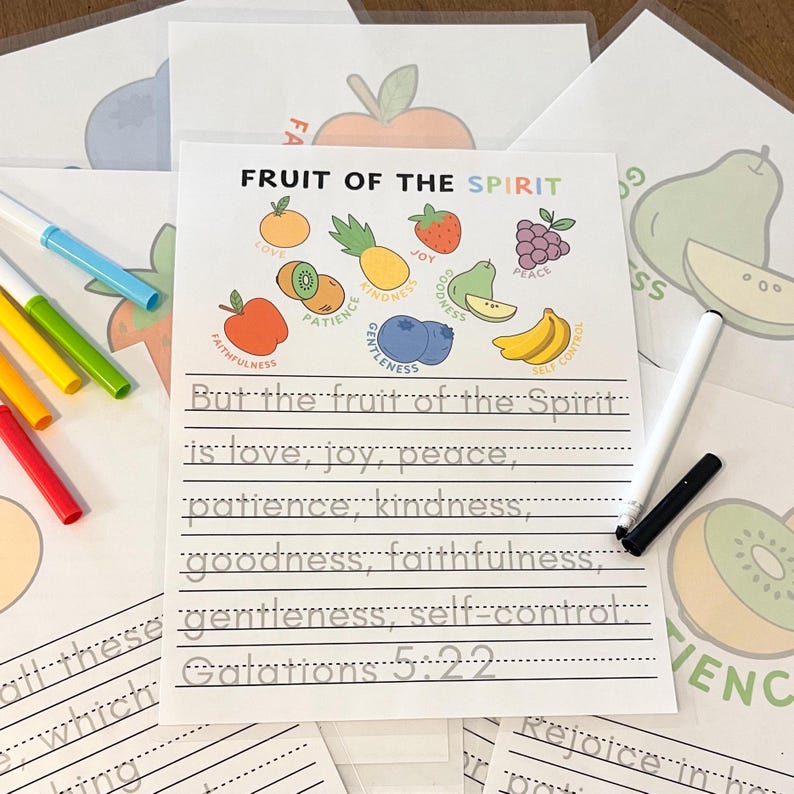 FA
GO
NESS
FRUIT OF THE SPIRIT
LOVE
KINDNESS
JOY
PEACE
PATIENCE
GOODNESS
FAITHFULNESS
GENTLENESS
SELF CONTROL
But the fruit of the Spirit
is love, joy, peace,
patience, kindness,
goodness, faithfulness,
gentleness, self-control.
Galations 5:22
all these
, which
TIENC
Rejoice in